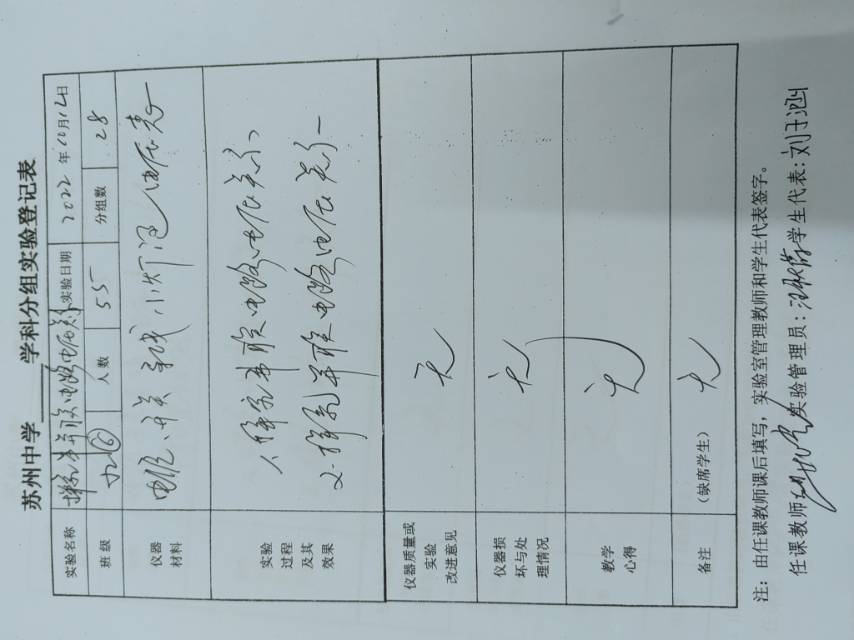 苏州中学____学科分组实验登记表
实验名称 探究串并联电路电压关系 实验日期 2022年10月12日
班级 九(6) 人数 55 分组数 28
仪器材料 电源、开关 导线 小灯泡 电压表
实验过程及其效果 1.探究串联电路电压关系
2.探究并联电路电压关系
仪器质量或实验改进意见 无
仪器损坏与处理情况 无
教学心得 无
备注 (缺席学生) 无
注：由任课教师课后填写，实验室管理教师和学生代表签字。
任课教师 实验管理员: 学生代表: 刘子涵